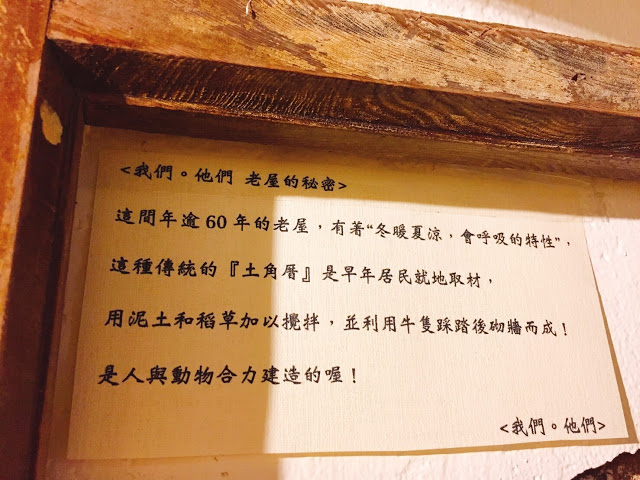 <我們。他們 老屋的秘密>
這間年逾60年的老屋，有著“冬暖夏涼，會呼吸的特性”，
這種傳統的『土角厝』是早年居民就地取材，
用泥土和稻草加以攪拌，並利用牛隻踩踏後砌牆而成！
是人與動物合力建造的喔！
<我們。他們>